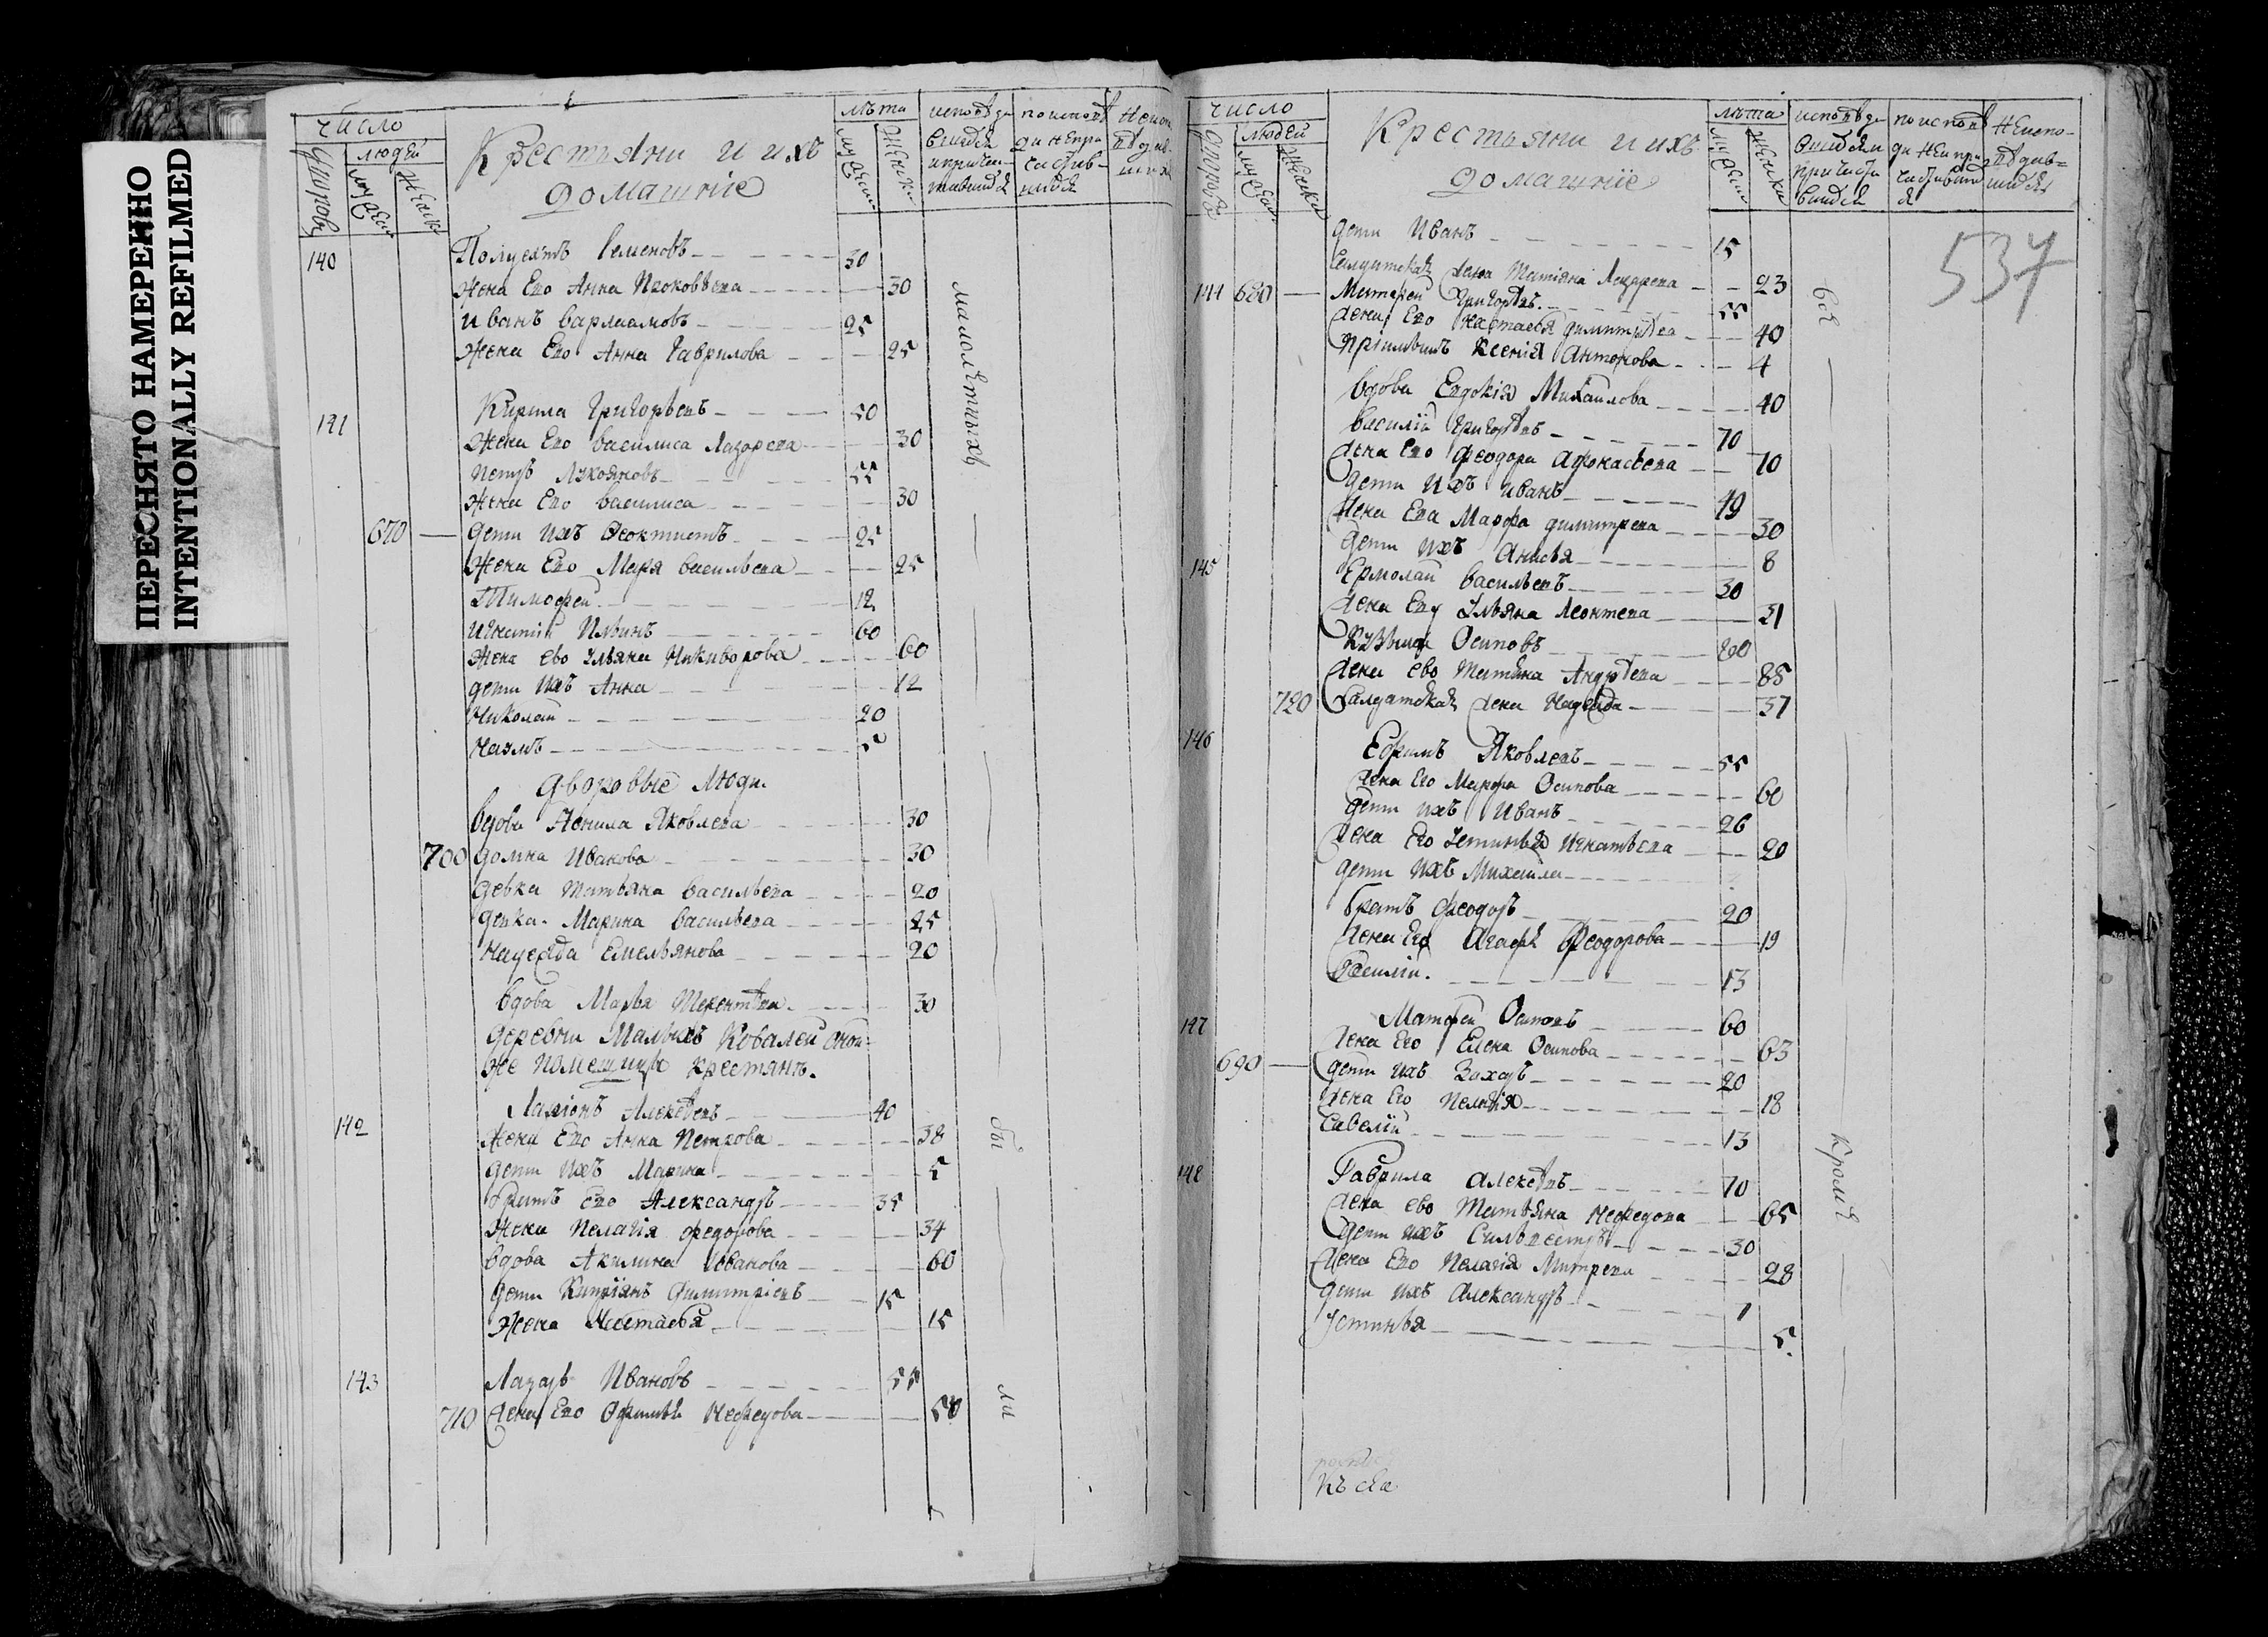 ПЕРЕСНЯТО НАМЕРЕННО
INTENTIONALLY REFILMED
число
людей
мужеск
женск
Крестьяни и ихъ
домашніе
лѣта
140
Полуехтъ Семеновъ 30
Жена Ево Анна Прокофьева 30
Иванъ Варламовъ 25
Жена Ево Анна Гаврилова 25
141
Кирила Григорьевъ 50
Жена Ево Василиса Лазарева 30
Петръ Лукояновъ 55
Жена Ево Василиса 30
670 Дети ихъ Феоктистъ 25
Жена Ево Маря Васильева 25
Тимофей 12
Игнатій Ильинъ 60
Жена ево Ульяна Никифорова 60
дети ихъ Анна 12
Николай 20
Наумъ
Дворовые Люди
Вдова Ненила Яковлева 30
700 Домна Иванова 30
Девка Татьяна Васильева 20
Девка Марина Васильева 25
Надежда Емельянова 20
Вдова Марья Терентьева 30
Деревни Малыхъ Ковалей оной
же помещицы крестянъ.
142
Ларіонъ Алексѣевъ 40
Жена Ево Анна Петрова 38
Дети ихъ Марина 5
Братъ ево Александръ 35
Жена Пелагія Федорова 34
Вдова Акилина Иванова 60
Дети Кипріянъ Димитріевъ 15
Жена Настасья 15
143
Лазарь Ивановъ 55
710 Жена Ево Офимья Нефедова 50
малолѣтныхъ
бы
ли
число
людей
Крестьяни и ихъ
домашніе
лѣта
537
Дети Иванъ 15
Салдатская жена Татіяна Лазарева 23
144 680 Матфей Григорьевъ 55
Жена Ево Настасья Димитрѣева 40
Ксенія Антонова 4
Вдова Евдокія Михаилова 40
Василій Григорьевъ 70
Жена Ево Феодора Афонасьева 70
Дети ихъ Иванъ 19
Жена Ева Марфа Димитрева 30
Дети ихъ Анисья 8
145
Ермолай Васильевъ 30
Жена Еву Ульяна Леонтева 31
Кузьма Осиповъ
Жена ево Татіяна Андрѣева 88
720 Салдатская жена Надежда
146
Ефимъ Яковлевъ 55
Жена Его Марфа Осипова 60
Дети ихъ Иванъ 26
Жена Его Устинья Игнатьева 20
Дети ихъ Михаила
Братъ Феодоръ 20
Жена Его Агафья Феодорова 19
Василій 13
147
Матфей Осиповъ 60
Жена Его Елена Осипова 63
690 Дети ихъ Захаръ 20
Жена Его Пелагія 18
Савелій 13
148
Гаврила Алексѣевъ 70
Жена ево Татьяна Нефедова 65
Дети ихъ Сильвестръ 30
Жена Ево Пелагія Митрева 28
Дети ихъ Александръ 1
Устинья 5
всѣ
кромѣ
къ сва